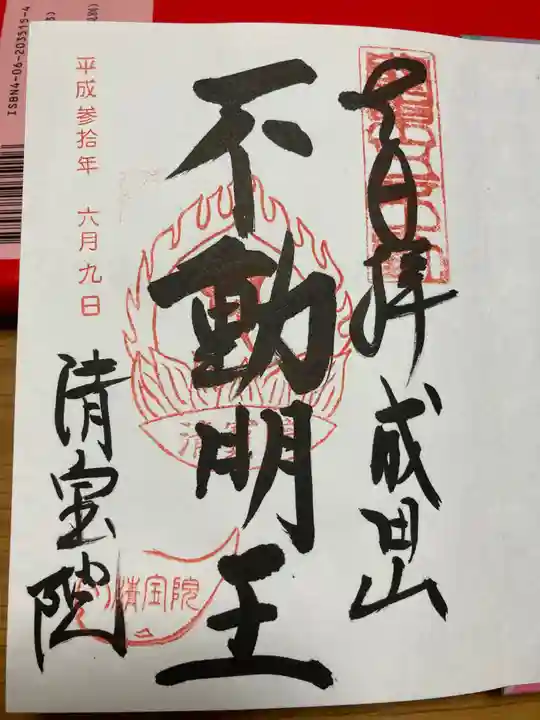 奉拝 成田山
不動明王
清宝院
平成参拾年 六月九日
清宝院
ISBN4-06-203515-4